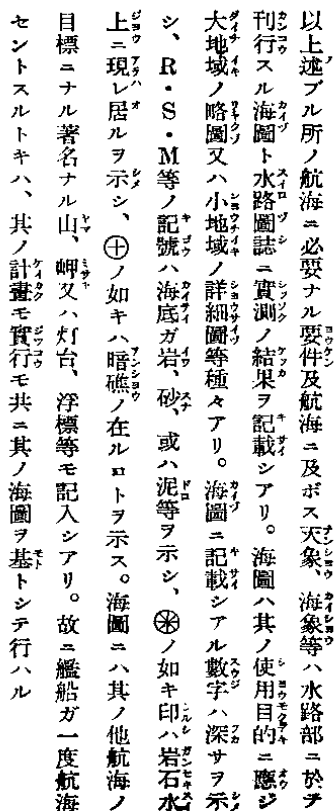 以上述ブル所ノ航海ニ必要ナル要件及航海ニ及ボス天象、海象等ハ水路部ニ於テ
刊行スル海圖ト水路圖誌ニ實測ノ結果ヲ記載シアリ。海圖ハ其ノ使用目的ニ應ジ
大地域ノ略圖又ハ小地域ノ詳細圖等種々アリ。海圖ニ記載シアル數字ハ深サヲ示
シ、R・S・M等ノ記號ハ海底ガ岩、砂、或ハ泥等ヲ示シ、※ノ如キ印ハ岩石水
上ニ現レ居ルヲ示シ、⊕ノ如キハ暗礁ノ在ルコトヲ示ス。海圖ニハ其ノ他航海ノ
目標ニナル著名ナル山、岬又ハ灯台、浮標等モ記入シアリ。故ニ艦船ガ一度航海
セントスルトキハ、其ノ計畫モ實行モ共ニ其ノ海圖ヲ基トシテ行ハル